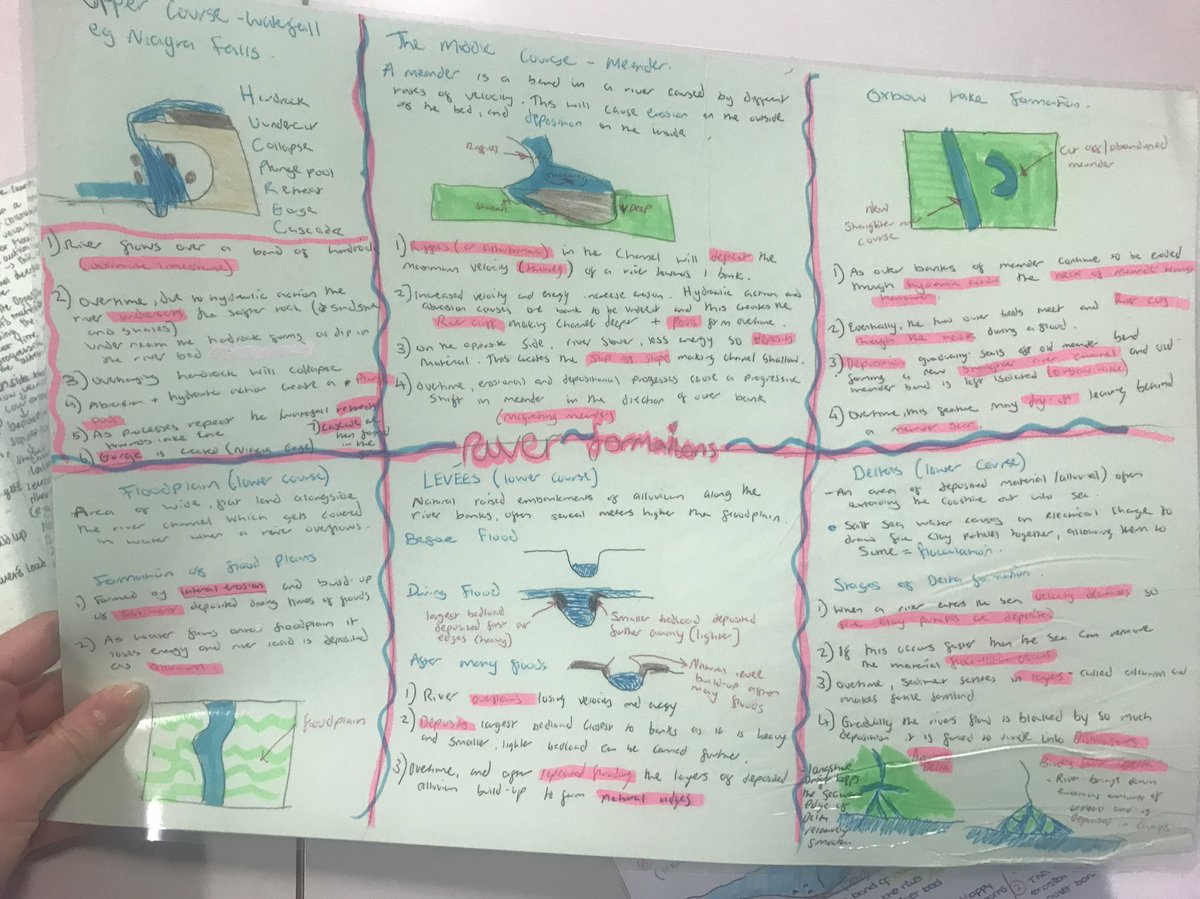 Upper Course - Waterfall
eg Niagra Falls.
Hardrock
Undercut
Collapse
Plunge pool
Retreat
Gorge
Cascade
1) River flows over a band of hardrock
(dolomite limestone)
2) Overtime, due to hydraulic action the
river undercuts the softer rock (sandstone
and shales)
underneath the hardrock forming a dip in
the river bed
3) Overhanging hardrock will collapse
4) Abrasion + hydraulic action create a Plunge
Pool
5) As processes repeat the waterfall retreats
towards lake Erie
6) Gorge is created (Niagra Gorge)
7) Cascade
The Middle Course - Meander.
A meander is a bend in a river caused by different
rates of velocity. This will cause erosion on the outside
of the bed, and deposition on the inside
Riffles
Thalweg
Shallow
Deep
1) Riffles (or disturbances) in the channel will deflect the
maximum velocity (thalweg) of a river towards 1 bank.
2) Increased velocity and energy increase erosion. Hydraulic action and
abrasion causes the bank to be undercut and this creates the
River cliff making channel deeper + Pools form overtime.
3) On the opposite side, river slower, less energy so deposits
material. This creates the slip off slope making channel shallow.
4) Overtime, erosional and depositional processes cause a progressive
shift in meander in the direction of outer bank
(migrating meander)
Oxbow lake formation.
Cut off/abandoned
meander
New
straighter
course
1) As outer banks of meander continue to be eroded
through hydraulic action the neck of meander becomes
narrower
2) Eventually, the two outer beds meet and River cuts
through the neck during a flood.
3) Deposition gradually seals off old meander bend
forming a new straighter river channel and old
meander bend is left isolated (oxbow lake)
4) Overtime, this feature may dry up leaving behind
a meander scar.
River formations
Floodplain (lower course)
Area of wide, flat land alongside
the river channel which gets covered
in water when a river overflows.
Formation of flood plains
1) Formed by lateral erosion and build-up
of sediment deposited during times of floods
2) As water flows onto floodplain it
loses energy and river load is deposited
as alluvium
floodplain
LEVÉES (lower course)
Natural raised embankments of alluvium along the
river banks, often several meters higher than floodplain.
Before Flood
During Flood
largest bedload
deposited first at
edges (heavy)
Smaller bedload deposited
further away (lighter)
After many floods
Natural level
build-up after
many floods
1) River overflows losing velocity and energy
2) Deposits largest bedload closest to banks as it is heavy
and smaller, lighter bedload can be carried further.
3) Overtime, and after repeated flooding the layers of deposited
alluvium build-up to form natural ridges
Deltas (lower course)
- An area of deposited material (alluvial) often
extending the coastline out into sea.
• Salt sea water causes an electrical charge to
draw fine clay particles together, allowing them to
= flocculation.
Stages of Delta formation.
1) When a river enters the sea velocity decreases so
fine clay particles are deposited
2) If this occurs faster than the sea can remove
the material flocculation occurs
3) Overtime, sediment settles in layers called alluvium and
makes fertile farmland
4) Gradually the rivers flow is blocked by so much
deposition it is forced to divide into Distributaries
Arcuate
Delta
- Longshore
Drift keeps
the seaward
Edge of
Delta
relatively
smooth.
Bird's foot Delta
- River brings down
enormous amounts of